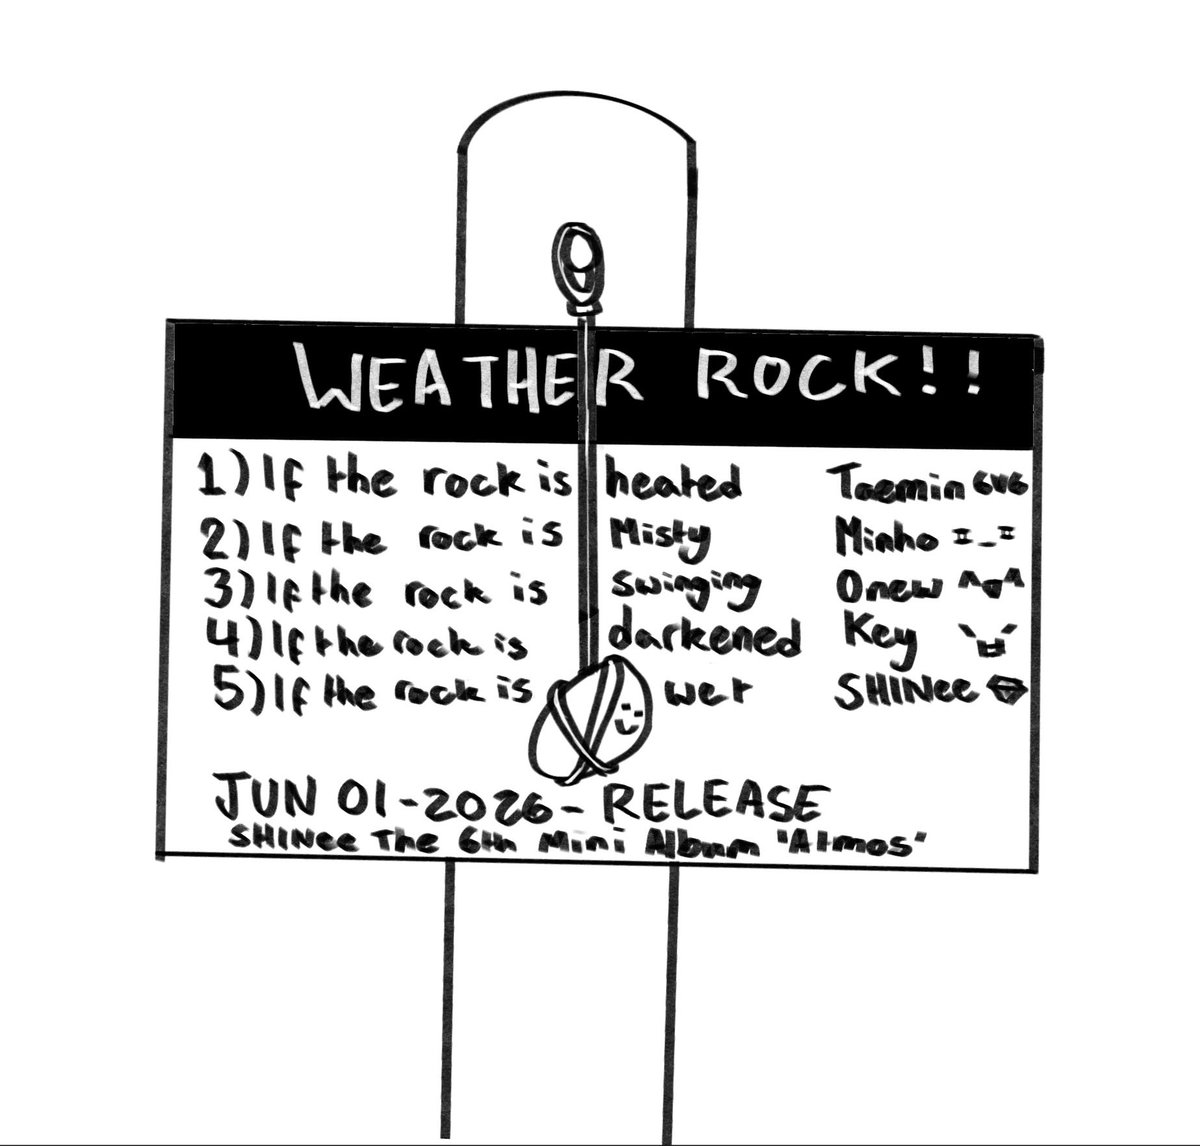 WEATHER ROCK!!
1) If the rock is heated Taemin 6v6
2) If the rock is Misty Minho ꟾ_ꟾ
3) If the rock is swinging Onew ^o^
4) If the rock is darkened Key
5) If the rock is wet SHINee
JUN 01-2026-RELEASE
SHINee The 6th Mini Album 'Atmos'